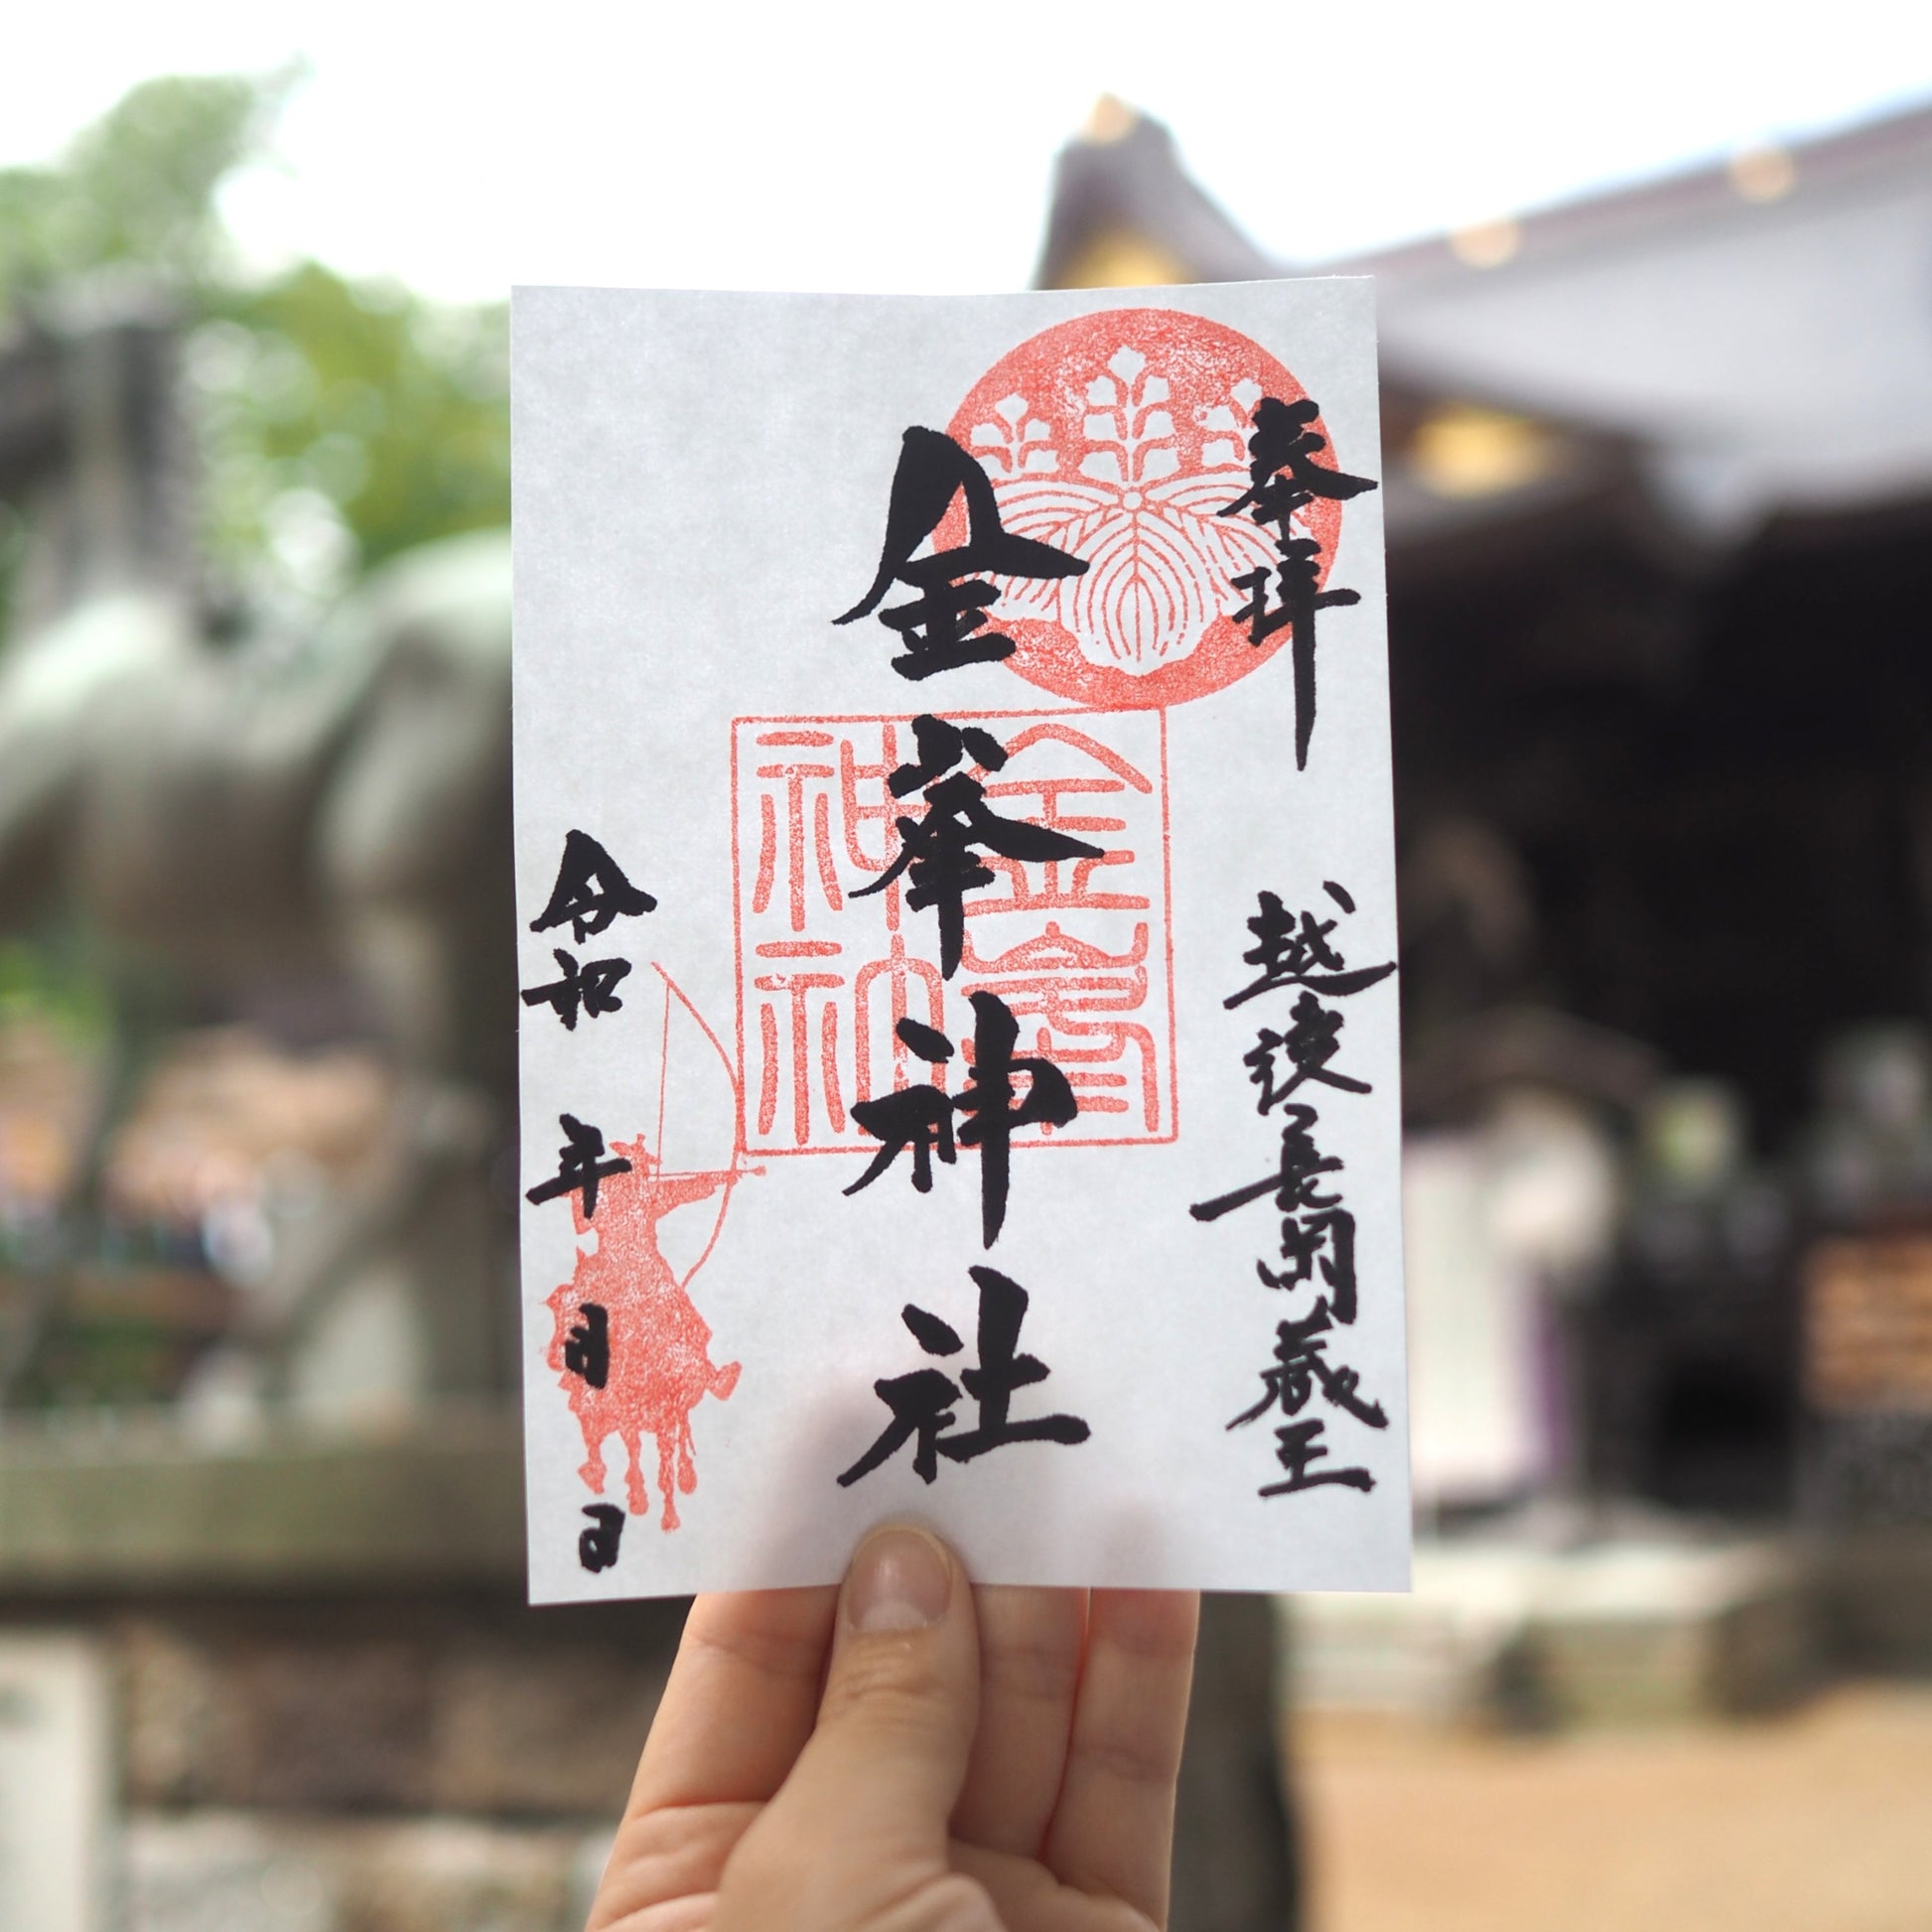 奉拝
越後長岡蔵王
金峯神社
金峯神社
令和 年 月 日